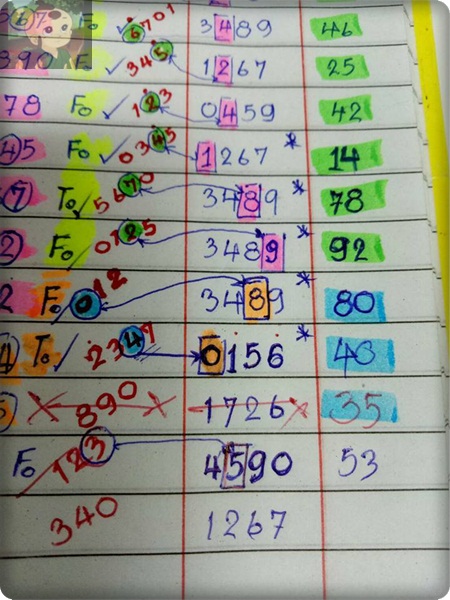 367 Fo ✓ 6701 3489 46
390 Fo ✓ 345 1267 25
78 Fo ✓ 123 0459 42
45 Fo ✓ 0345 1267 * 14
7 To ✓ 5670 3489 * 78
2 Fo 0125 3489 * 92
2 Fo 012 3489 * 80
4 To ✓ 2347 0156 * 40
X 890 X 1726 x 35
Fo 123 4590 53
340 1267